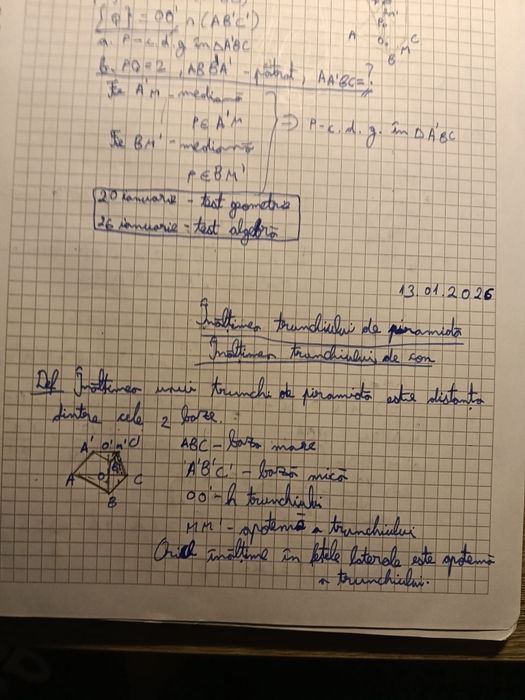 {P} = OO' ∩ (AB'C')
a. P - c. d. g în ΔA'BC
b. PQ = 2, ABB'A' - pătrat, AA'BC = ?
Fie A'M - mediană
P ∈ A'M
Fie BM' - mediană
P ∈ BM'
⇒ P - c. d. g. în ΔA'BC
A
O
M
C
B
20 ianuarie - test geometrie
26 ianuarie - test algebră
13.01.2026
Înălțimea trunchiului de piramidă
Înălțimea trunchiului de con
Def Înălțimea unui trunchi de piramidă este distanța
dintre cele 2 baze.
A' O' M' C'
A
O
C
B
ABC - baza mare
A'B'C' - bază mică
OO - h trunchiului
MM' - apotemă a trunchiului
Orice înălțime în fețele laterale este apotemă
a trunchiului.